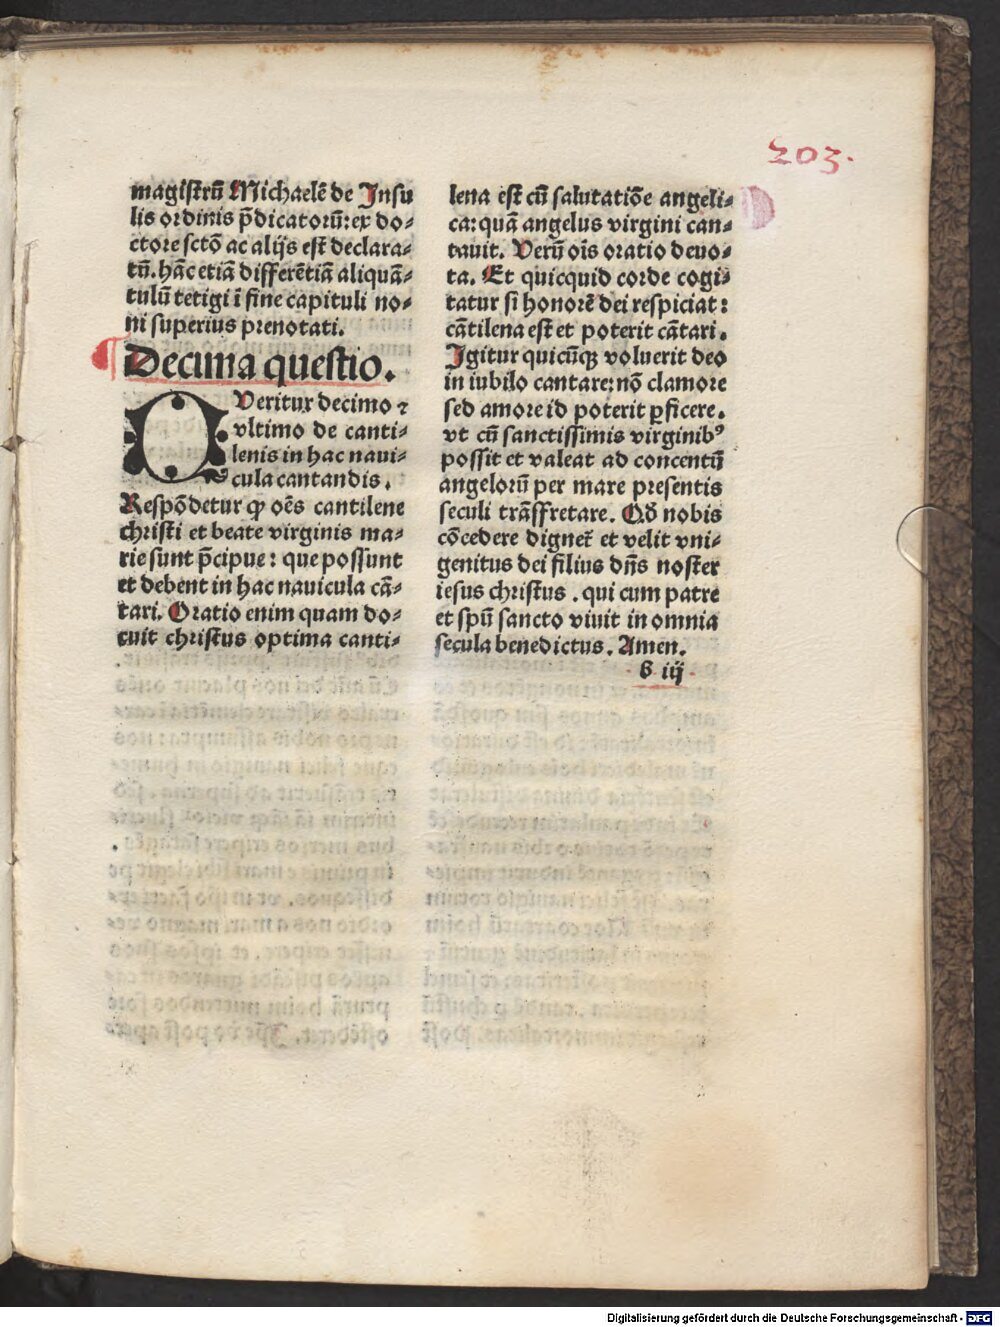 203.
magistrū Michaelē de Insu
lis ordinis p̄dicatorū: ex do⸗
ctore sctō ac alijs est declara⸗
tū. hāc etiā differētiā aliquā⸗
tulū tetigi ī fine capituli no⸗
ni superius prenotati.
Decima questio.
QVeritur decimo ⁊
vltimo de canti⸗
lenis in hac naui⸗
cula cantandis.
Respōdetur ꝙ oēs cantilene
christi et beate virginis ma⸗
rie sunt p̄cipue: que possunt
et debent in hac nauicula cā⸗
tari. Oratio enim quam do⸗
cuit christus optima canti⸗
lena est cū salutatiōe angeli⸗
ca: quā angelus virgini can⸗
tauit. Verū oīs oratio deuo⸗
ta. Et quicquid corde cogi⸗
tatur si honorē dei respiciat:
cātilena est et poterit cātari.
Igitur quicūqꝫ voluerit deo
in iubilo cantare: nō clamore
sed amore id poterit ꝑficere.
vt cū sanctissimis virginibꝰ
possit et valeat ad concentū
angelorū per mare presentis
seculi trāsfretare. Qđ nobis
cōcedere dignet᷑ et velit vni⸗
genitus dei filius dn̄s noster
iesus christus. qui cum patre
et spū sancto viuit in omnia
secula benedictus. Amen.
B iij
Digitalisierung gefördert durch die Deutsche Forschungsgemeinschaft - DFG